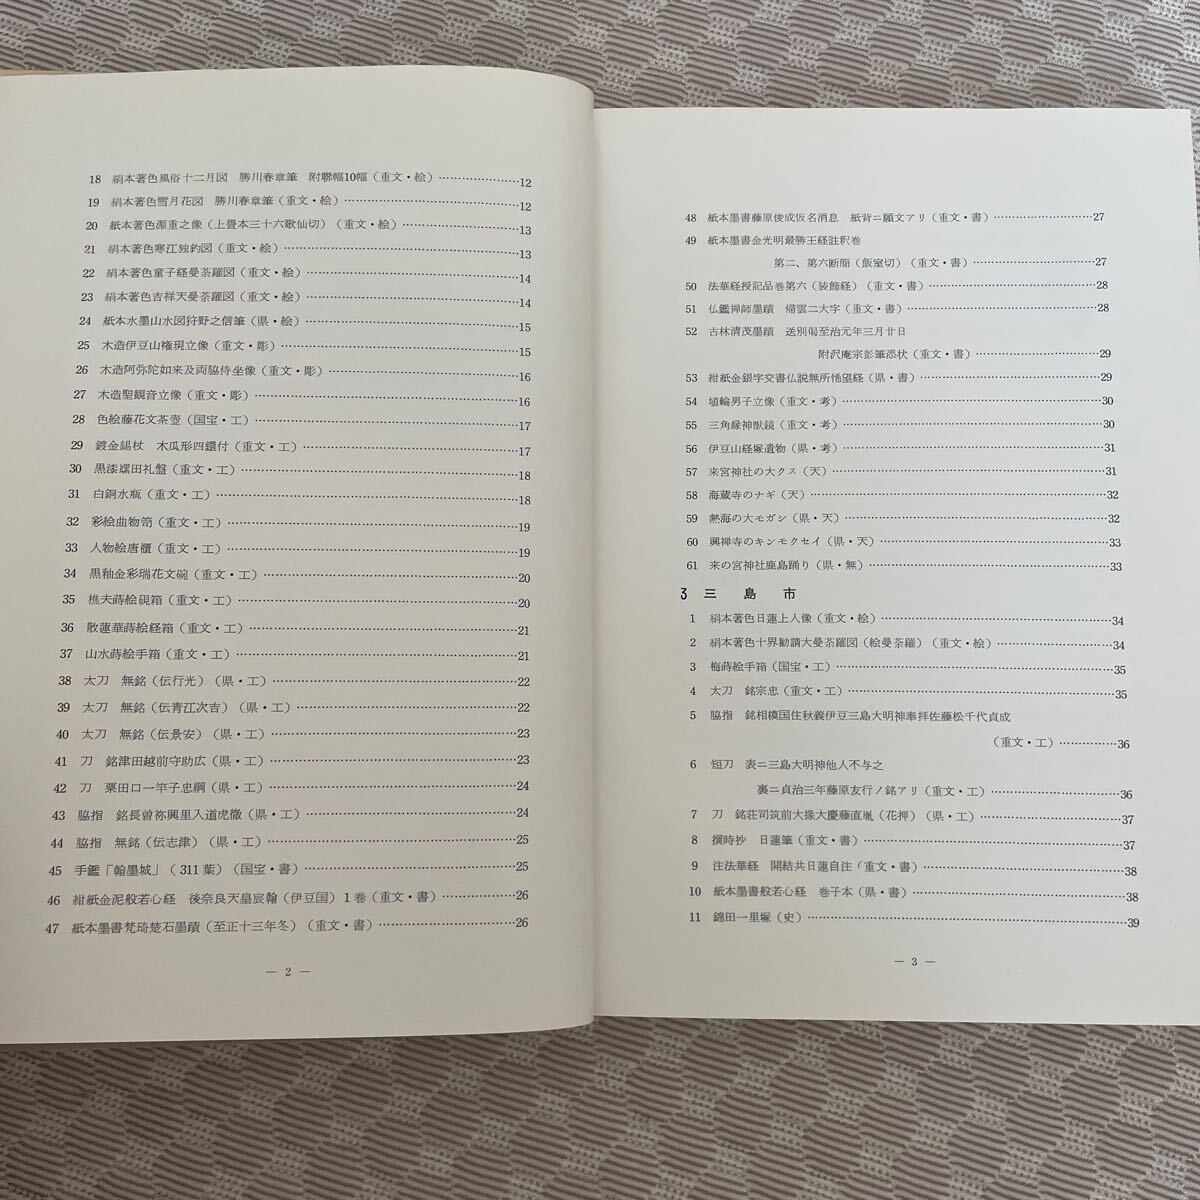 18 絹本著色風俗十二月図 勝川春章筆 附聯幅10幅(重文・絵)…………………12
19 絹本著色雪月花図 勝川春章筆(重文・絵)…………………12
20 紙本著色源重之像(上畳本三十六歌仙切)(重文・絵)…………………13
21 絹本著色寒江独釣図(重文・絵)…………………13
22 絹本著色童子経曼荼羅図(重文・絵)…………………14
23 絹本著色吉祥天曼荼羅図(重文・絵)…………………14
24 紙本水墨山水図狩野之信筆(県・絵)…………………15
25 木造伊豆山権現立像(重文・彫)…………………15
26 木造阿弥陀如来及両脇侍坐像(重文・彫)…………………16
27 木造聖観音立像(重文・彫)…………………16
28 色絵藤花文茶壺(国宝・工)…………………17
29 鍍金錫杖 木瓜形四鐶付(重文・工)…………………17
30 黒漆螺田礼盤(重文・工)…………………18
31 白銅水瓶(重文・工)…………………18
32 彩絵曲物笥(重文・工)…………………19
33 人物絵唐櫃(重文・工)…………………19
34 黒釉金彩瑞花文碗(重文・工)…………………20
35 樵夫蒔絵硯箱(重文・工)…………………20
36 散蓮華蒔絵経箱(重文・工)…………………21
37 山水蒔絵手箱(重文・工)…………………21
38 太刀 無銘(伝行光)(県・工)…………………22
39 太刀 無銘(伝青江次吉)(県・工)…………………22
40 太刀 無銘(伝景安)(県・工)…………………23
41 刀 銘津田越前守助広(県・工)…………………23
42 刀 粟田口一竿子忠綱(県・工)…………………24
43 脇指 銘長曽祢興里入道虎徹(県・工)…………………24
44 脇指 無銘(伝志津)(県・工)…………………25
45 手鑑「翰墨城」(311葉)(国宝・書)…………………25
46 紺紙金泥般若心経 後奈良天皇宸翰(伊豆国)1巻(重文・書)…………………26
47 紙本墨書梵琦楚石墨蹟(至正十三年冬)(重文・書)…………………26
— 2 —
48 紙本墨書藤原俊成仮名消息 紙背ニ願文アリ(重文・書)…………………27
49 紙本墨書金光明最勝王経註釈巻
第二、第六断簡(飯室切)(重文・書)…………………27
50 法華経授記品巻第六(装飾経)(重文・書)…………………28
51 仏鑑禅師墨蹟 帰雲二大字(重文・書)…………………28
52 古林清茂墨蹟 送別偈至治元年三月廿日
附沢庵宗彭筆添状(重文・書)…………………29
53 紺紙金銀字交書仏説無所悕望経(県・書)…………………29
54 埴輪男子立像(重文・考)…………………30
55 三角縁神獣鏡(重文・考)…………………30
56 伊豆山経塚遺物(県・考)…………………31
57 来宮神社の大クス(天)…………………31
58 海蔵寺のナギ(天)…………………32
59 熱海の大モガシ(県・天)…………………32
60 興禅寺のキンモクセイ(県・天)…………………33
61 来の宮神社鹿島踊り(県・無)…………………33
3 三島市
1 絹本著色日蓮上人像(重文・絵)…………………34
2 絹本著色十界勧請大曼荼羅図(絵曼荼羅)(重文・絵)…………………34
3 梅蒔絵手箱(国宝・工)…………………35
4 太刀 銘宗忠(重文・工)…………………35
5 脇指 銘相模国住秋義伊豆三島大明神奉拝佐藤松千代貞成
(重文・工)…………………36
6 短刀 表ニ三島大明神他人不与之
裏ニ貞治三年藤原友行ノ銘アリ(重文・工)…………………36
7 刀 銘荘司筑前大掾大慶藤直胤(花押)(県・工)…………………37
8 撰時抄 日蓮筆(重文・書)…………………37
9 注法華経 開結共日蓮自注「重文・書)…………………38
10 紙本墨書般若心経 巻子本(県・書)…………………38
11 錦田一里塚(史)…………………39
— 3 —